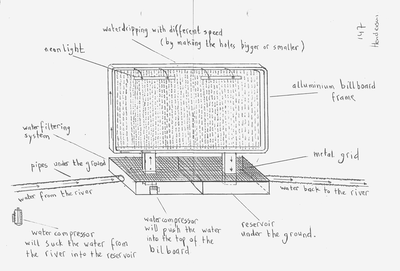 waterdripping with different speed
(by making the holes bigger or smaller)
147
neonlight
alluminium billboard
frame
waterfiltering
system
metal grid
pipes under the ground
water from the river
water back to the river
watercompressor
will suck the water from
the river into the reservoir
watercompressor
will push the water
into the top of the
billboard
reservoir
under the ground.